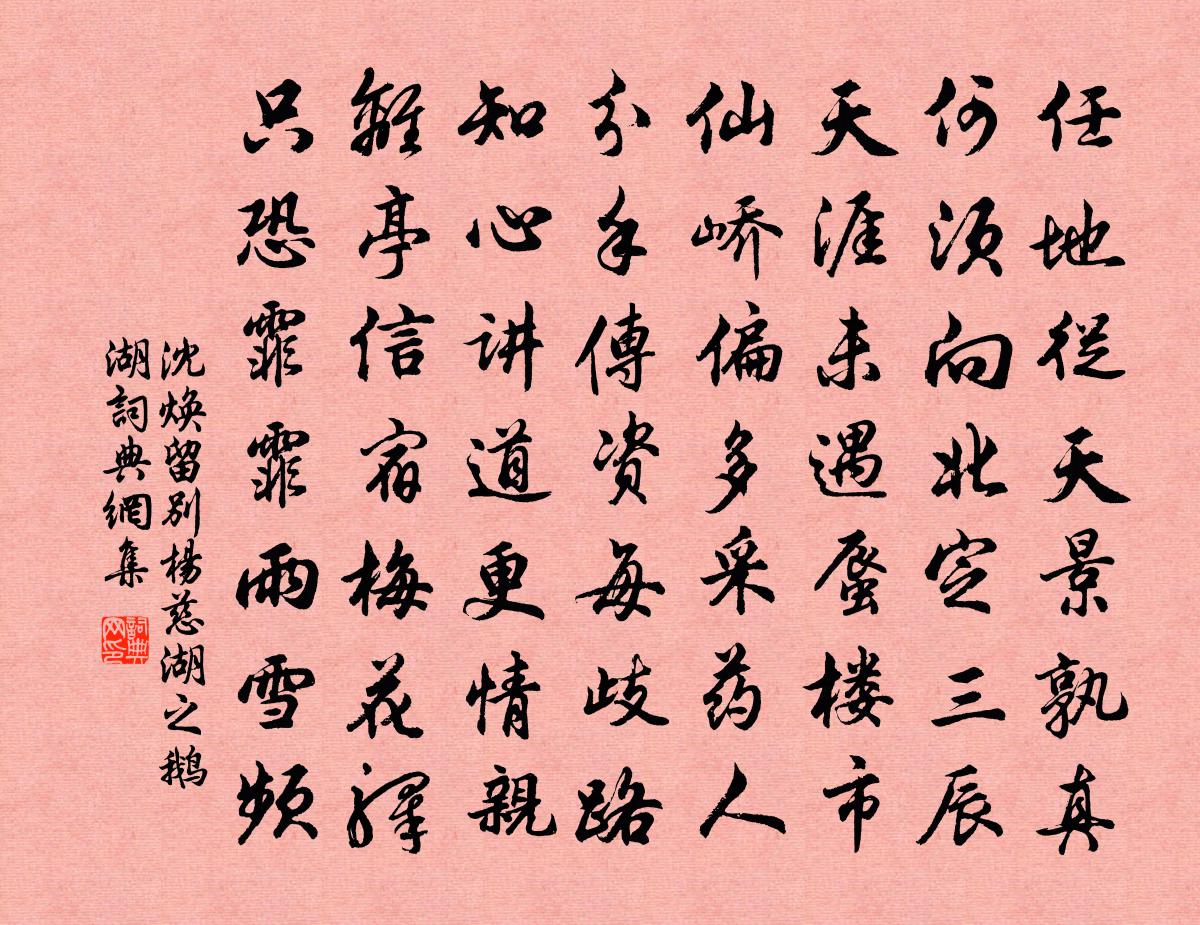 任地從天景孰真
何須向北定三辰
天涯未遇蜃楼市
仙峤偏多采药人
分手傳资每歧路
知心讲道更情親
離亭信宿梅花驛
只恐霏霏雨雪頻
沈焕留别楊慈湖之鹅
湖詞典網集
詞典网印